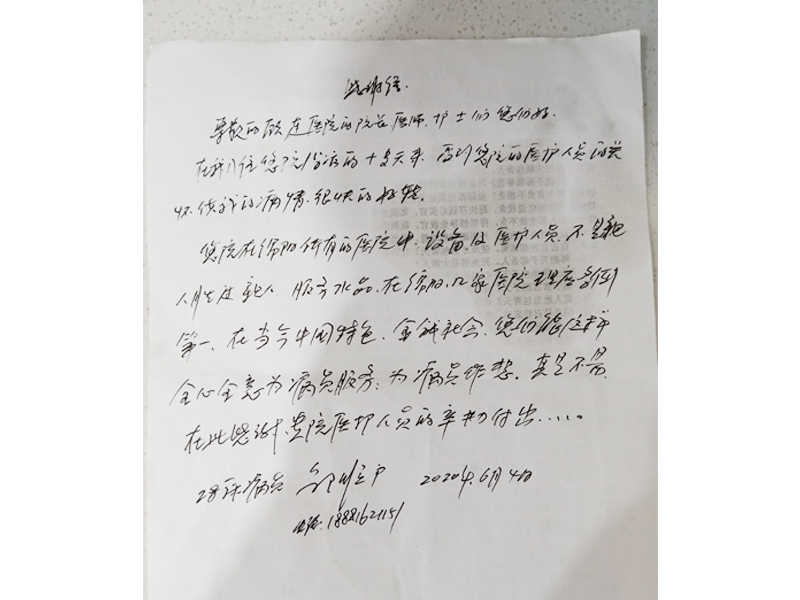 感谢信.
尊敬的顾连医院的院长医师.护士们您们好.
在我们住您院治疗的十多天来.受到您院的医护人员的关
怀.使我的病情.很快的好转.
您院在绵阳所有的医院中.设备及医护人员.不是
服务水品.在绵阳.几家医院理应名列
第一.在当今中国特色.金钱社会.您们能这样
全心全意为病员服务.为病员作想.真是不易
在此感谢.贵院医护人员的辛勤付出......
28床病员 2020年.6月4日
电话:18881621151